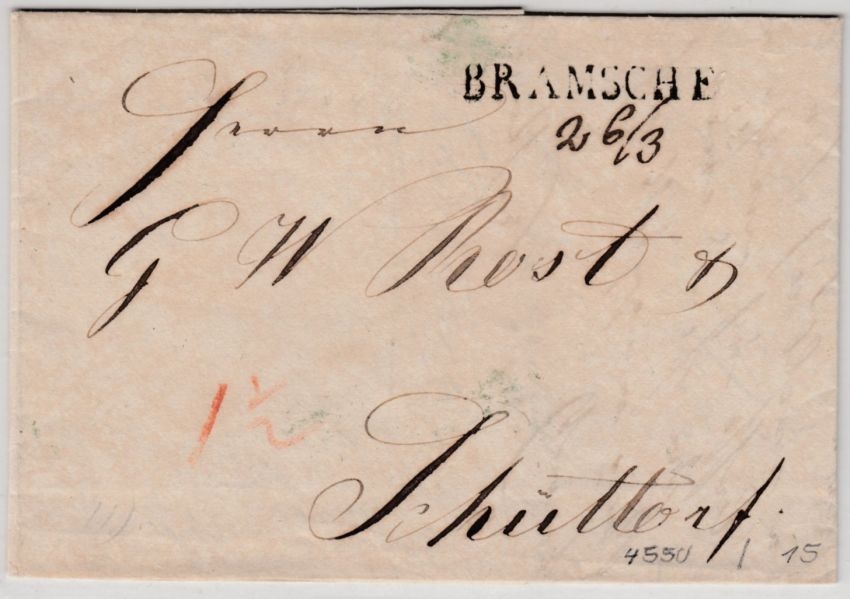 BRAMSCHE
26/3
Herrn
G W Rost &
1 1/2
Schüttorf.
4550 / 15